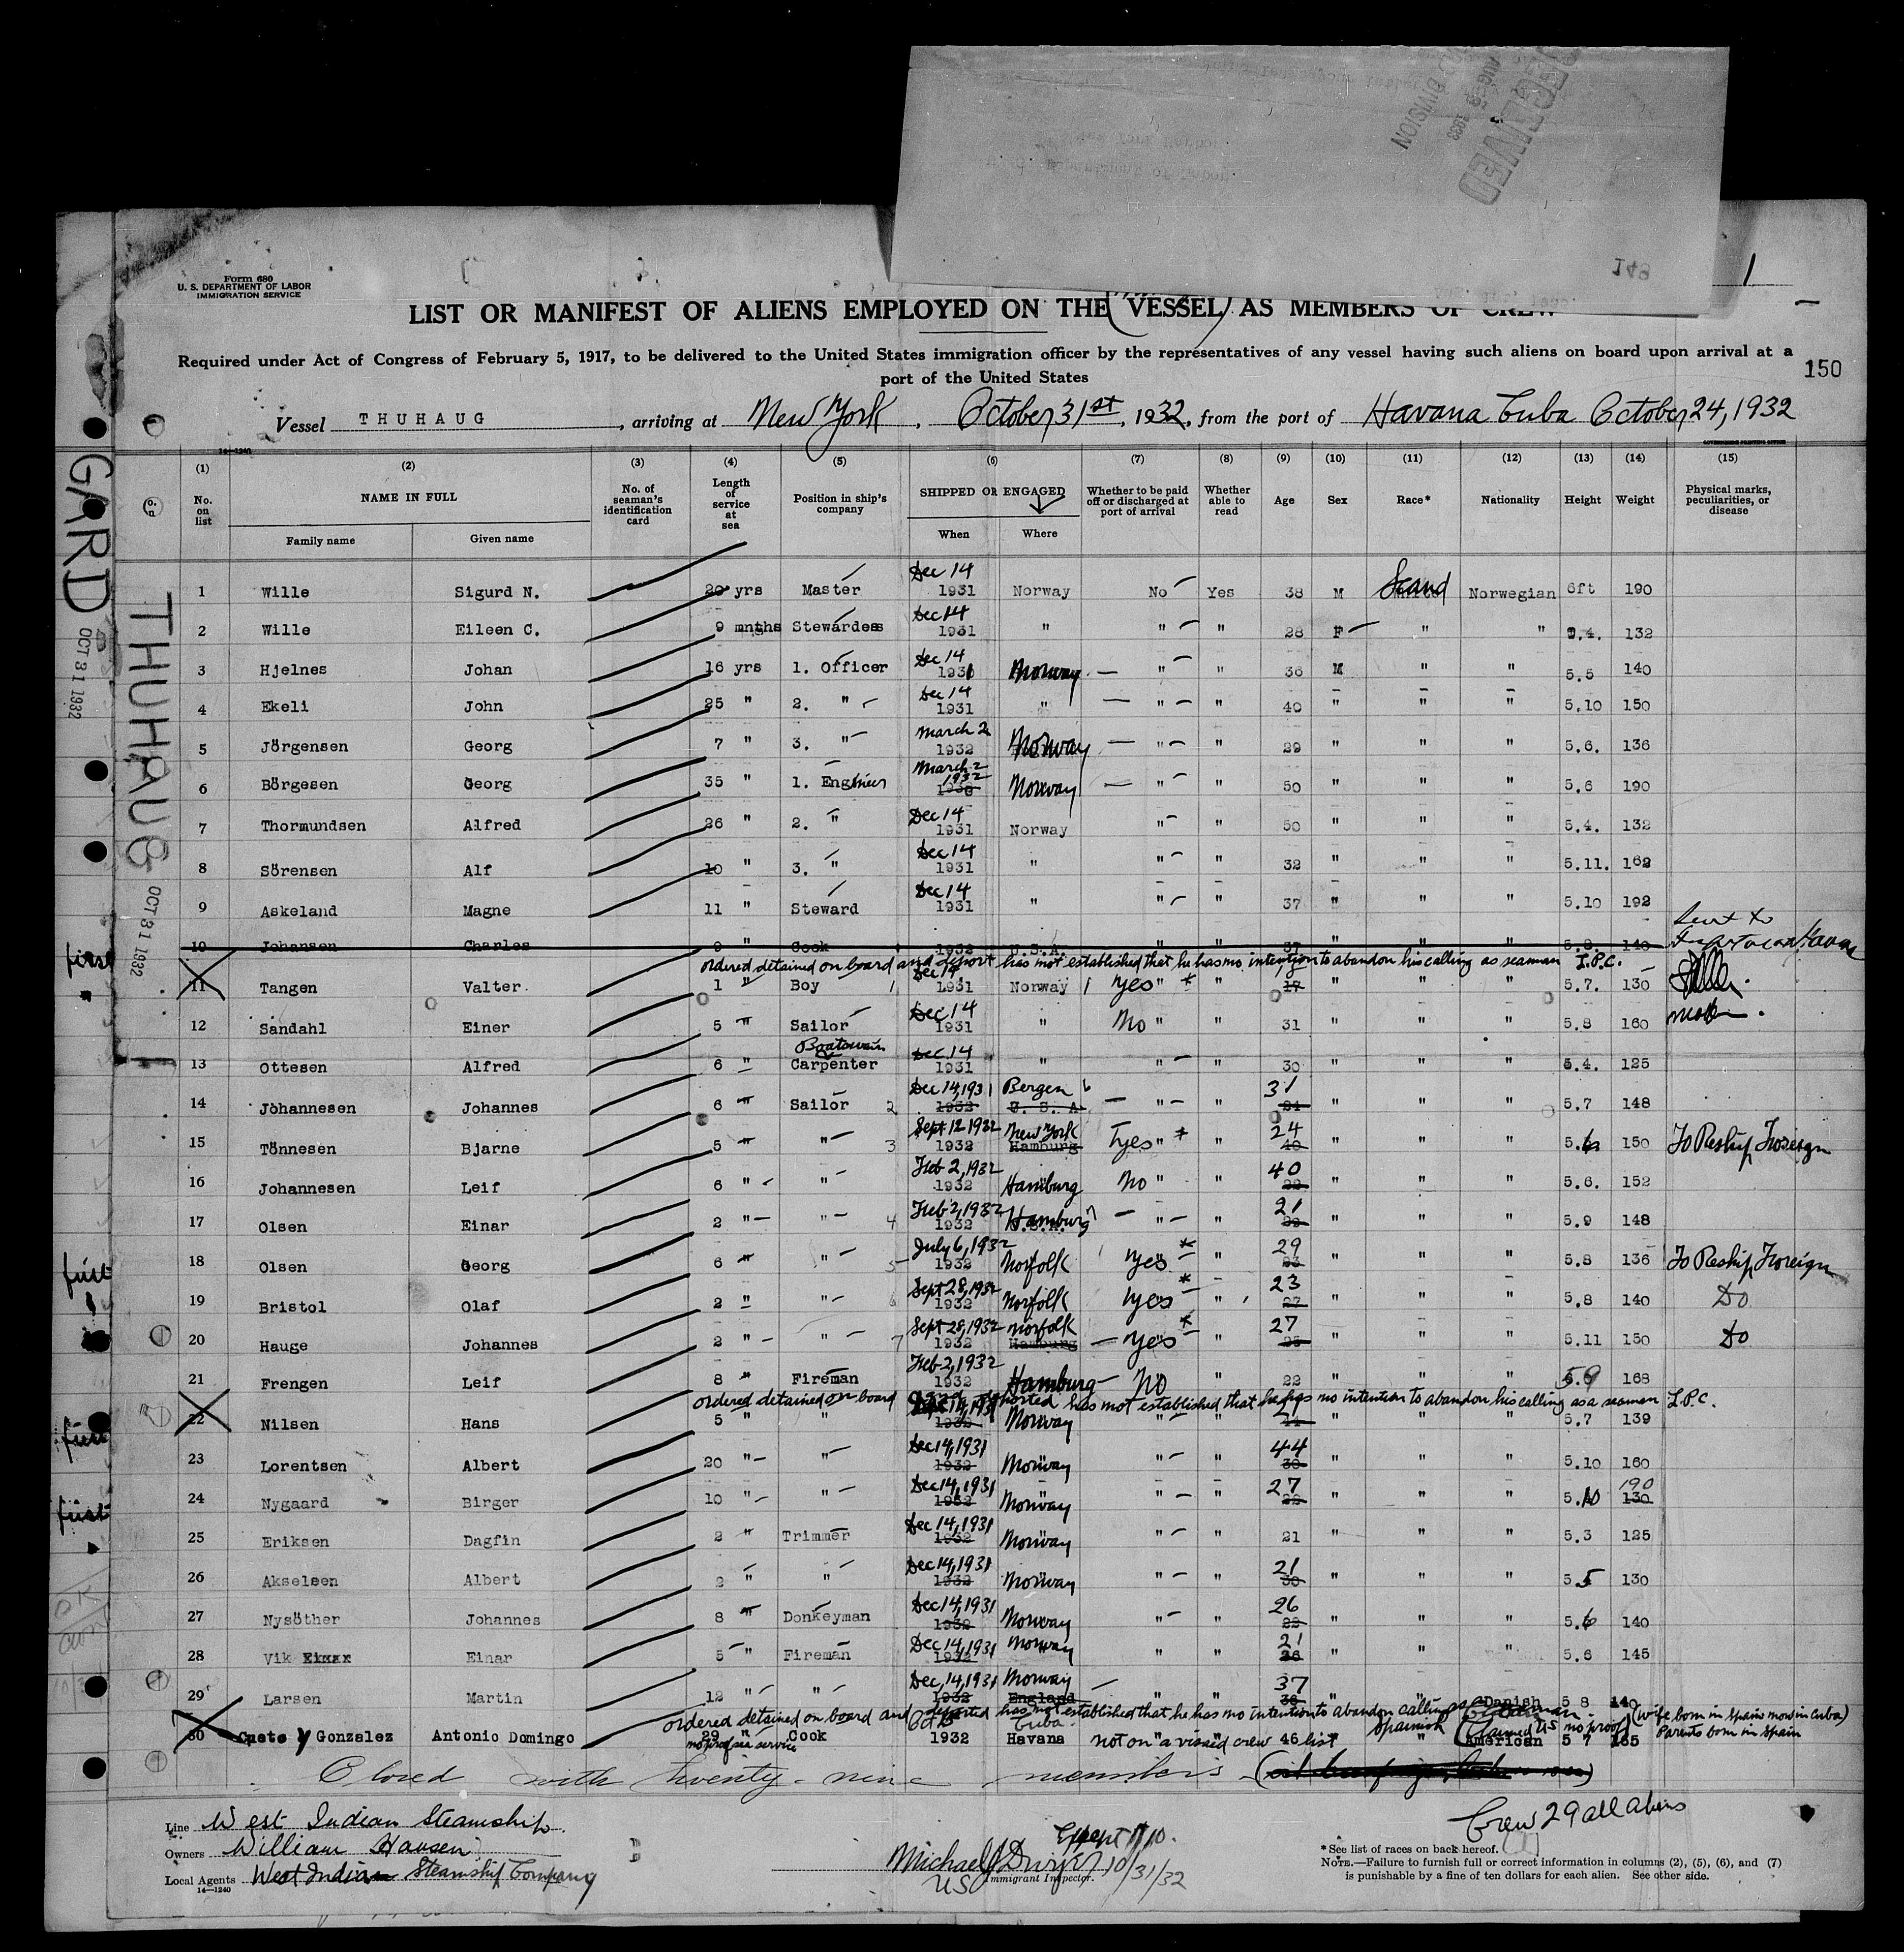 RECEIVED
AUG 1933
DIVISION
148
1
Form 680
U. S. DEPARTMENT OF LABOR
IMMIGRATION SERVICE
LIST OR MANIFEST OF ALIENS EMPLOYED ON THE (VESSEL) AS MEMBERS OF CREW
Required under Act of Congress of February 5, 1917, to be delivered to the United States immigration officer by the representatives of any vessel having such aliens on board upon arrival at a
port of the United States
150
Vessel THUHAUG, arriving at New York, October, 31st, 1932, from the port of Havana Cuba October, 24, 1932
14—1240
GOVERNMENT PRINTING OFFICE
(1) (2) (3) (4) (5) (6) (7) (8) (9) (10) (11) (12) (13) (14) (15)
No. on list NAME IN FULL Family name Given name No. of seaman's identification card Length of service at sea Position in ship's company SHIPPED OR ENGAGED When Where Whether to be paid off or discharged at port of arrival Whether able to read Age Sex Race* Nationality Height Weight Physical marks, peculiarities, or disease
GARD
OCT 31 1932
THUHAUG
OCT 31 1932
1 Wille Sigurd N. 20 yrs Master Dec 14 1931 Norway No Yes 38 M Scand Norwegian 6ft 190
2 Wille Eileen C. 9 mnths Stewardess Dec 14 1931 " " " 28 F " " 5.4. 132
3 Hjelnes Johan 16 yrs 1. Officer Dec 14 1931 Norway " " 36 M " " 5.5 140
4 Ekeli John 25 " 2. " Dec 14 1931 " " " 40 " " " 5.10 150
5 Jörgensen Georg 7 " 3. " March 2 1932 Norway " " 29 " " " 5.6. 136
6 Börgesen Georg 35 " 1. Engineer March 2 1932 Norway " " 50 " " " 5.6 190
7 Thormundsen Alfred 26 " 2. " Dec 14 1931 Norway " " 50 " " " 5.4. 132
8 Sörensen Alf 10 " 3. " Dec 14 1931 " " " 32 " " " 5.11. 162
9 Askeland Magne 11 " Steward Dec 14 1931 " " " 37 " " " 5.10 192
first 10 Johansen Charles 9 " Cook 1932 U.S.A. " " 37 " " " 5.8. 140 Sent to Havana
ordered detained on board and deport has not established that he has no intention to abandon his calling as seaman L.P.C.
11 Tangen Valter 1 " Boy Dec 14 1931 Norway Yes " * " 17 " " " 5.7. 130
12 Sandahl Einer 5 " Sailor Dec 14 1931 " No " " 31 " " " 5.8 160
Boatswain
13 Ottesen Alfred 6 " Carpenter Dec 14 1931 " " " 30 " " " 5.4. 125
14 Johannesen Johannes 6 " Sailor 2 Dec 14, 1931 1932 Bergen U.S.A. " " 31 " " " 5.7 148
15 Tönnesen Bjarne 5 " " 3 Sept 12 1932 1932 New York Hamburg Yes " * " 24 40 " " " 5.6 150 To Reship Foreign
16 Johannesen Leif 6 " " Feb 2, 1932 1932 Hamburg No " " 40 22 " " " 5.6. 152
17 Olsen Einar 2 " " 4 Feb 2, 1932 1932 Hamburg " " 21 " " " 5.9 148
18 Olsen Georg 6 " " 5 July 6, 1932 1932 Norfolk Yes * " 29 23 " " " 5.8 136 To Reship Foreign
19 Bristol Olaf 2 " " 6 Sept 28, 1932 1932 Norfolk Yes * " 23 27 " " " 5.8 140 Do
20 Hauge Johannes 2 " " 7 Sept 28, 1932 1932 Norfolk Hamburg Yes * " 27 25 " " " 5.11 150 Do
21 Frengen Leif 8 " Fireman Feb 2, 1932 1932 Hamburg No " 22 " " " 5.9 168
ordered detained on board and deported has not established that he has no intention to abandon his calling as a seaman L.P.C.
first 22 Nilsen Hans 5 " " Dec 14, 1931 1932 Norway " " " " " 5.7 139
23 Lorentsen Albert 20 " " Dec 14, 1931 1932 Norway " " 44 30 " " " 5.10 160
first 24 Nygaard Birger 10 " " Dec 14, 1931 1932 Norway " " 27 22 " " " 5.10 190 130
25 Eriksen Dagfin 2 " Trimmer Dec 14, 1931 1932 Norway " " 21 " " " 5.3 125
26 Akselsen Albert 2 " " Dec 14, 1931 1932 Norway " " 21 30 " " " 5.5 130
27 Nysöther Johannes 8 " Donkeyman Dec 14, 1931 1932 Norway " " 26 22 " " " 5.6 140
28 Vik Einar 5 " Fireman Dec 14, 1931 1932 Norway " " 21 26 " " " 5.6 145
29 Larsen Martin 12 " " Dec, 14, 1931 1932 Norway England " " 37 " " Danish 5 8 140
ordered detained on board and deported has not established that he has no intention to abandon calling as seaman (wife born in Spain now in Cuba)
30 Cueto y Gonzalez Antonio Domingo 29 " Cook Oct 1932 Cuba Havana not on a visaed crew list 46 " Spanish (Claimed US no proof) American 5 7 165 Parents born in Spain
no proof sea service
Closed with twenty-nine members
Crew 29 all aliens
Line West Indian Steamship
Owners William Hansen
Local Agents West Indian Steamship Company
14—1240
Except # 10.
Michael J Dwyer 10/31/32
US Immigrant Inspector.
*See list of races on back hereof.
NOTE.—Failure to furnish full or correct information in columns (2), (5), (6), and (7)
is punishable by a fine of ten dollars for each alien. See other side.